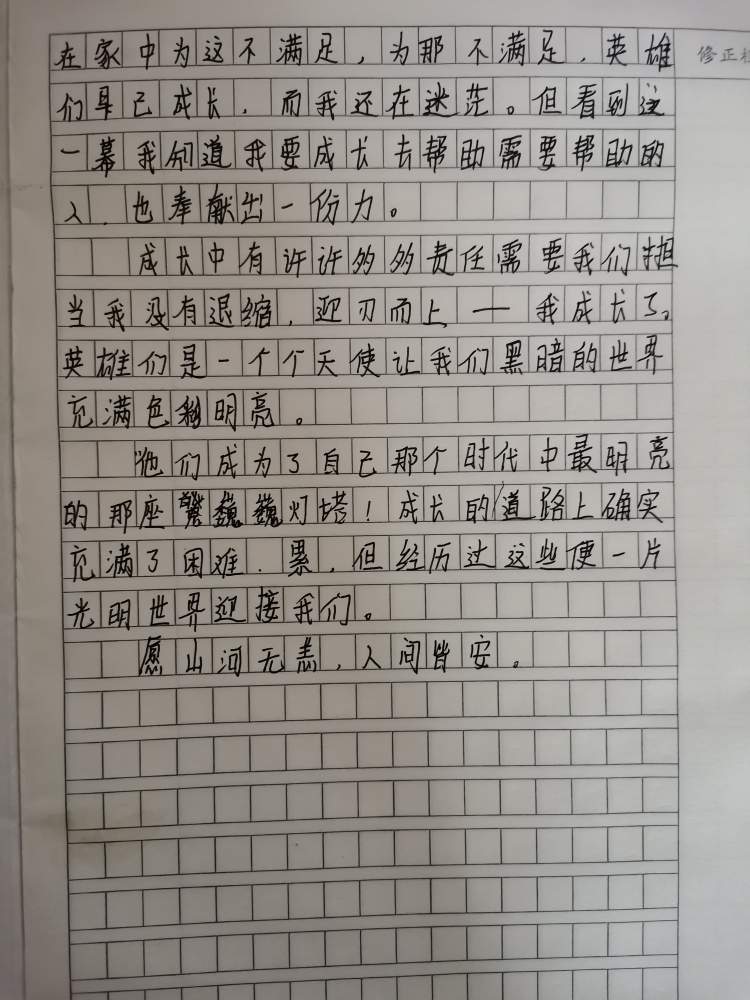 在家中为这不满足，为那不满足，英雄
修正栏
们早已成长，而我还在迷茫。但看到这
一幕我知道我要成长去帮助需要帮助的
人，也奉献出一份力。
成长中有许许多多责任需要我们担
当我没有退缩，迎刃而上——我成长了。
英雄们是一个个天使让我们黑暗的世界
充满色彩明亮。
他们成为了自己那个时代中最明亮
的那座巍巍灯塔！成长的道路上确实
充满了困难、累，但经历过这些便一片
光明世界迎接我们。
愿山河无恙，人间皆安。